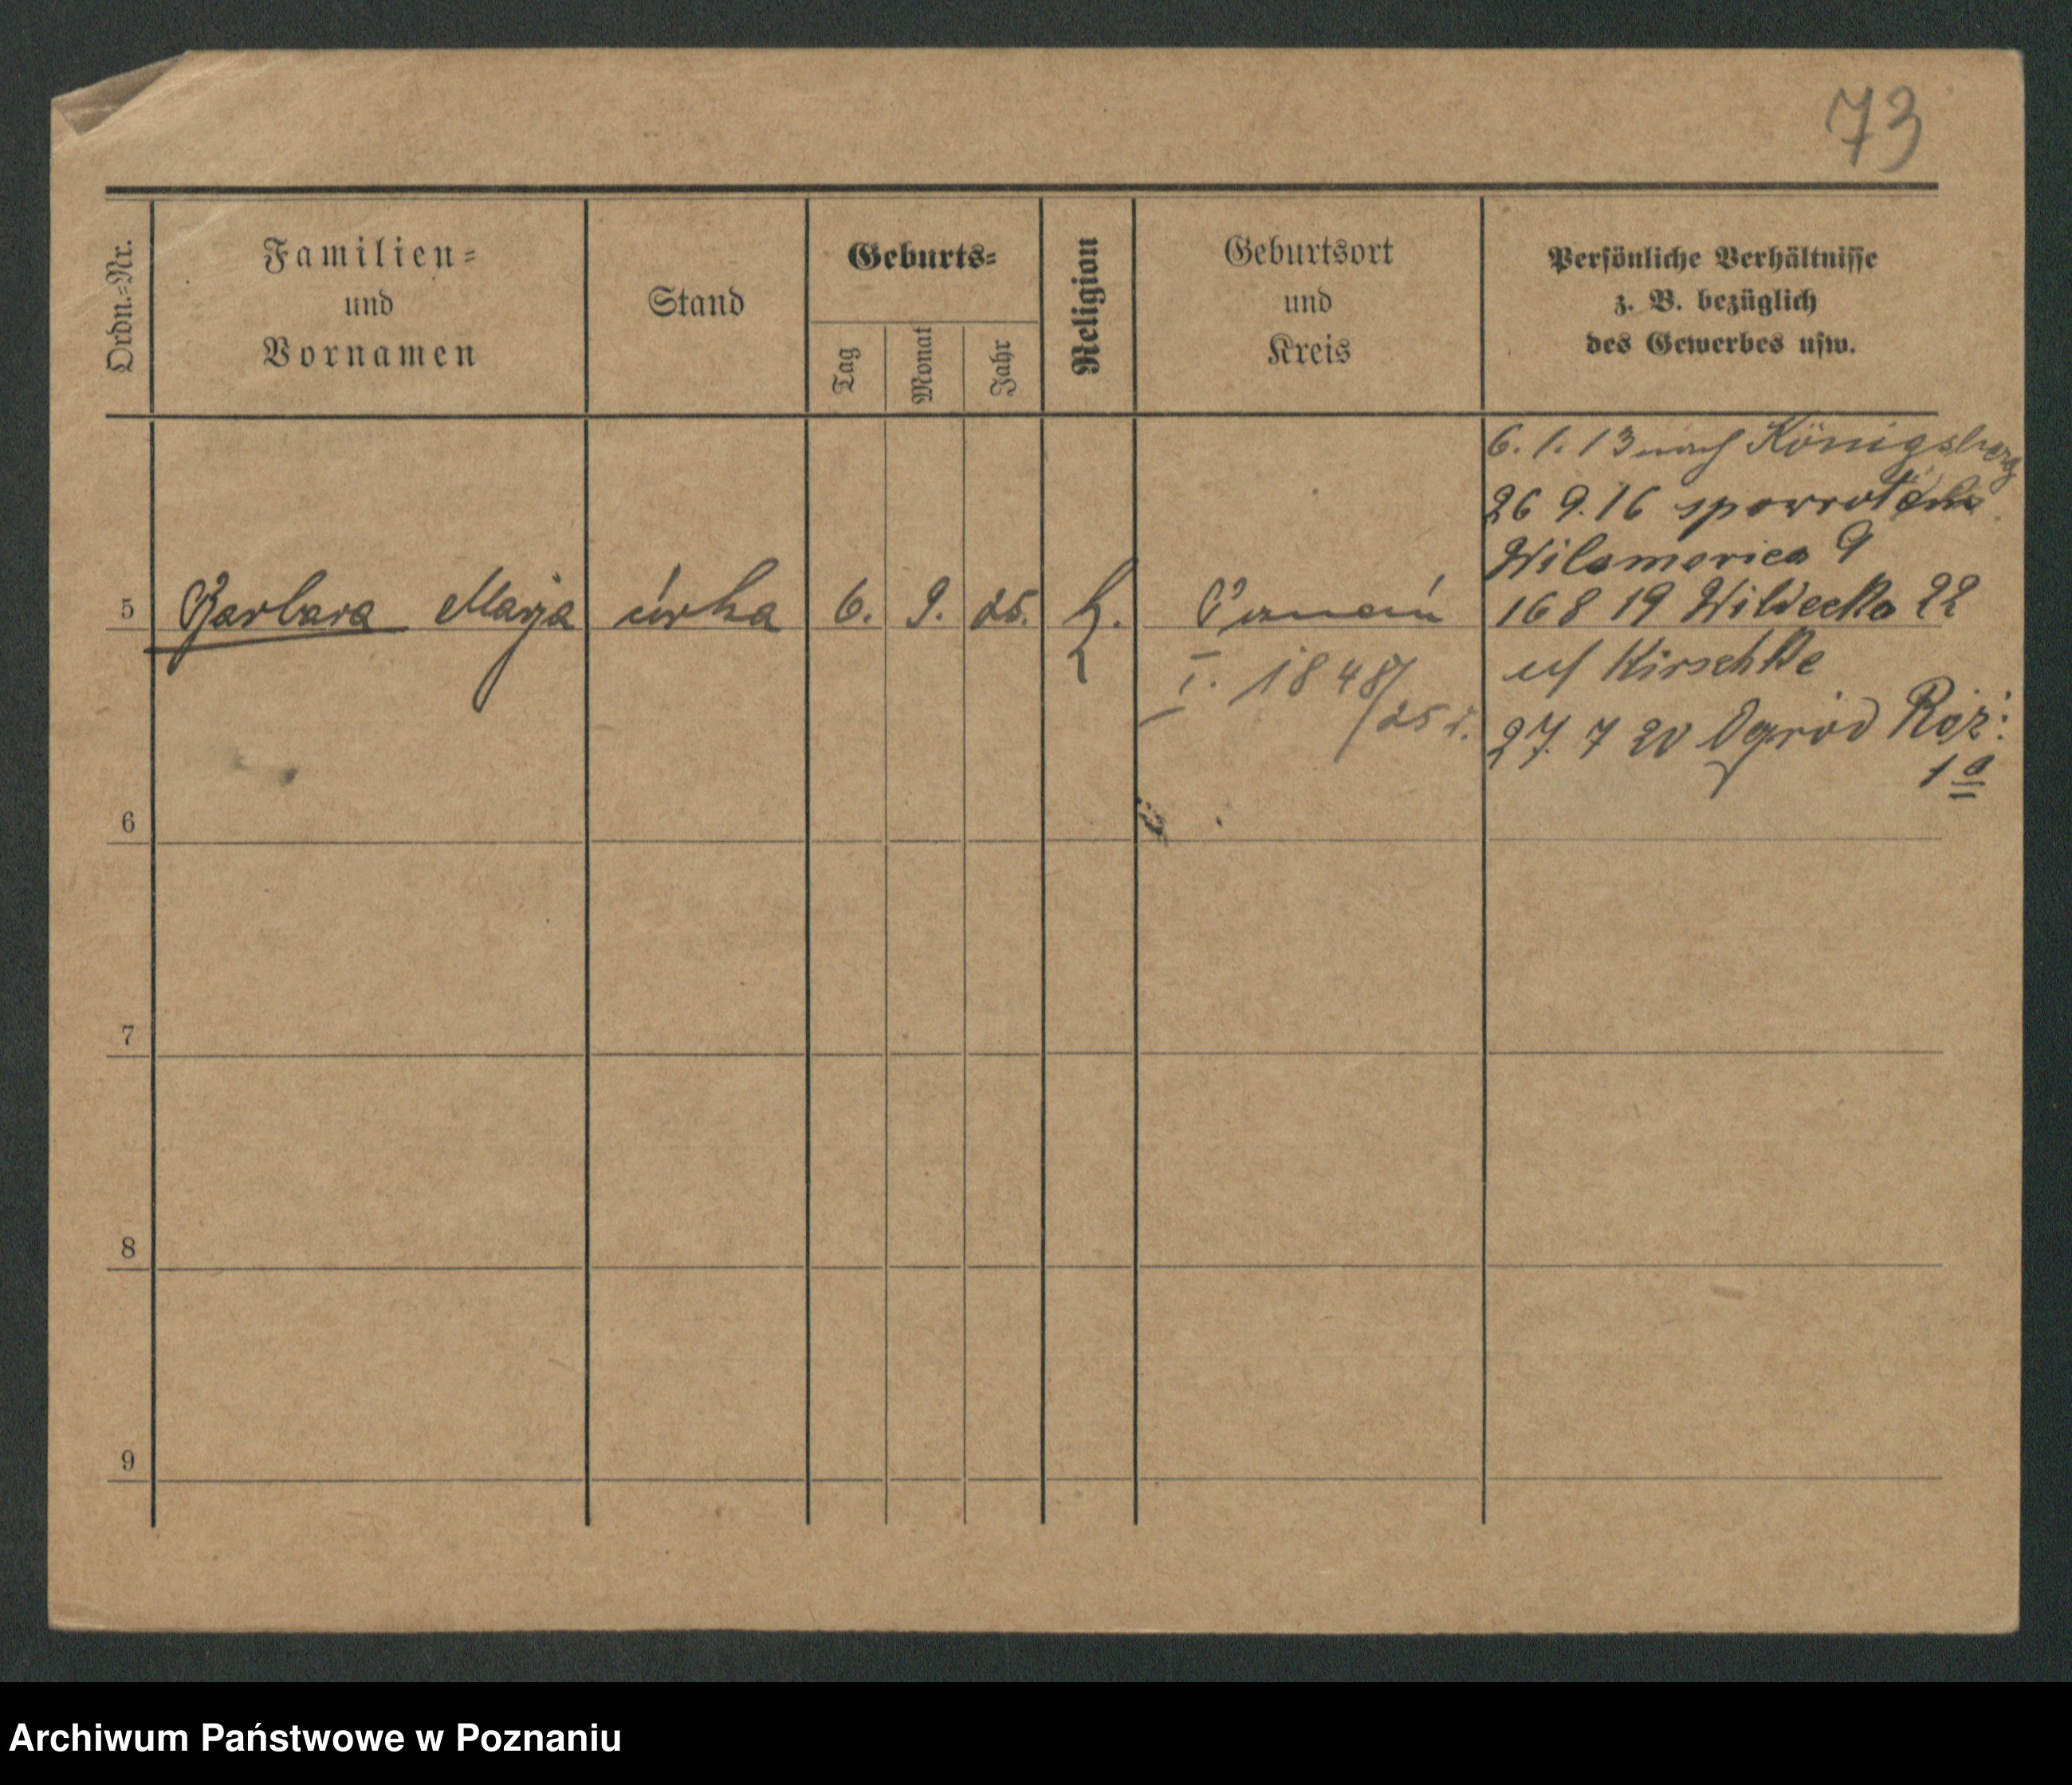 73
Ordn.-Nr.
Familien-
und
Vornamen
Stand
Geburts-
Tag
Monat
Jahr
Religion
Geburtsort
und
Kreis
Persönliche Verhältnisse
z. B. bezüglich
des Gewerbes usw.
5 Barbara Marja córka 6. 9. 25. k. Poznań
I. 1848/
/25 r.
6. 1. 13 nach Königsberg
26 9. 16 spowrotem
9
16 8 19 Wildecka 22
u/ Kirschke
27. 7 20 Ogród
1a
6
7
8
9
Archiwum Państwowe w Poznaniu